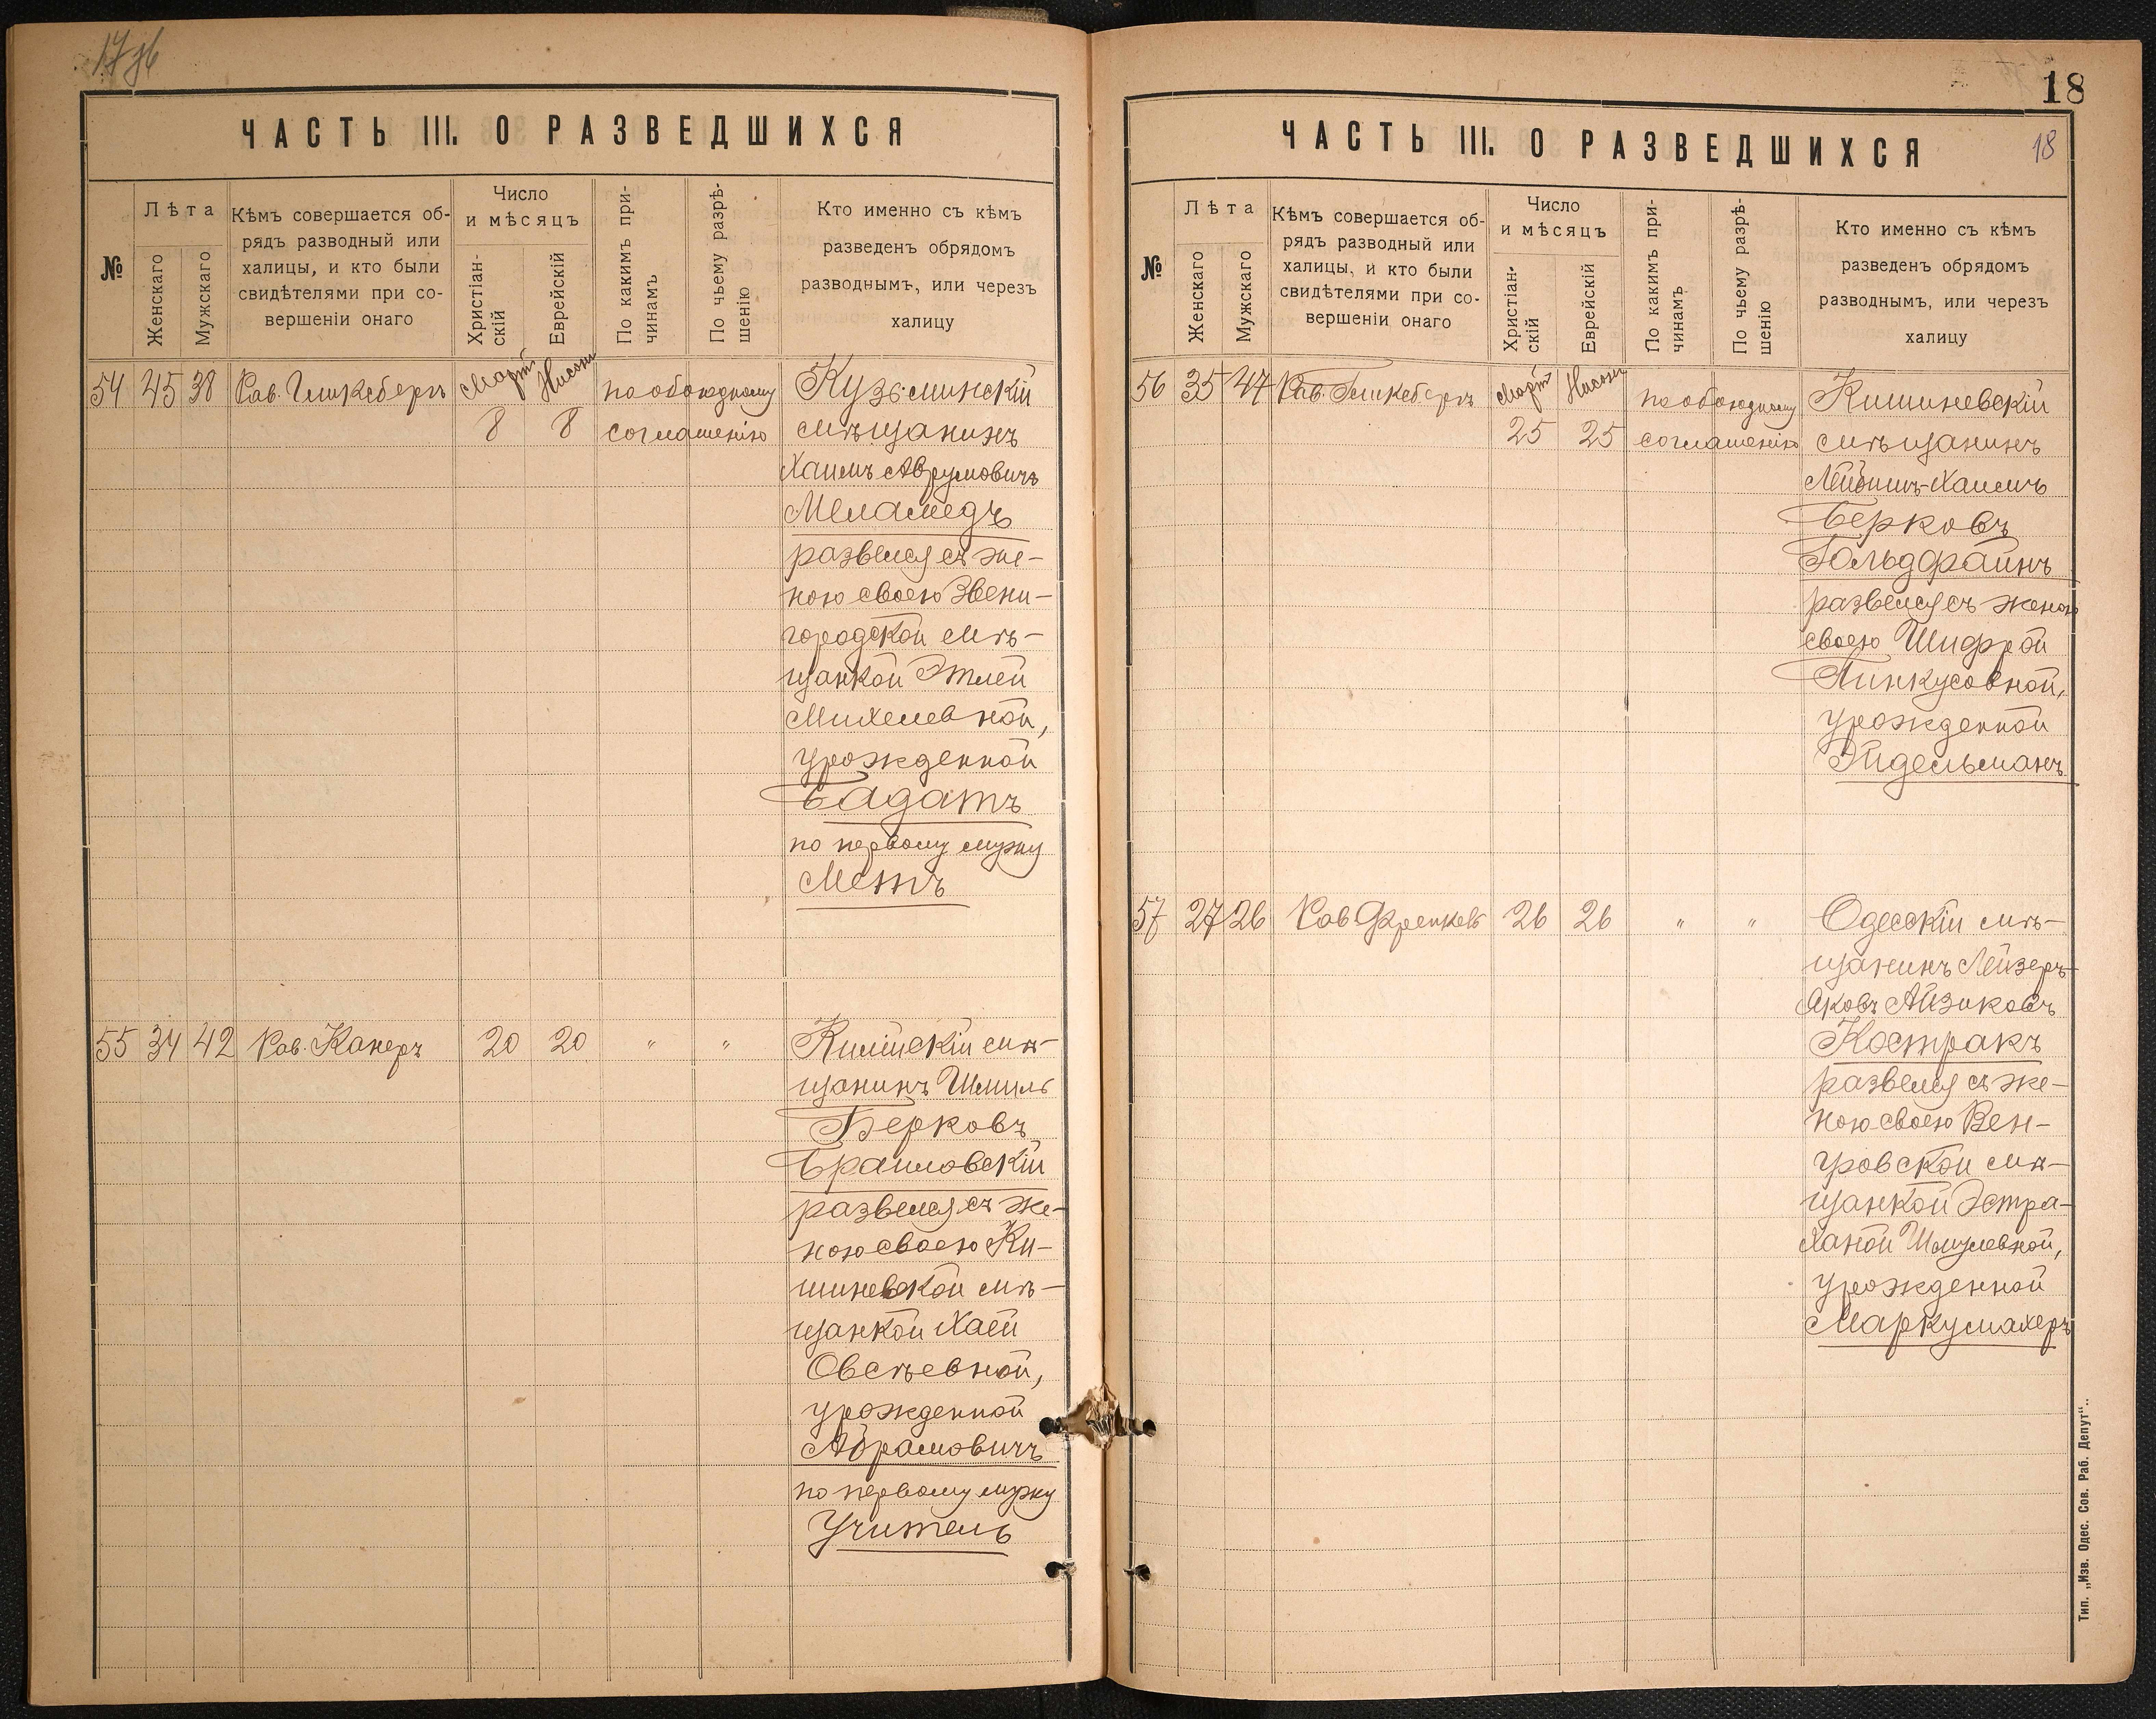 17 об
ЧАСТЬ III. О РАЗВЕДШИХСЯ
№
Лѣта
Женскаго
Мужскаго
Кѣмъ совершается об-
рядъ разводный или
халицы, и кто были
свидѣтелями при со-
вершеніи онаго
Число
и мѣсяцъ
Христіан-
скій
Еврейскій
По какимъ при-
чинамъ
По чьему разрѣ-
шенію
Кто именно съ кѣмъ
разведенъ обрядомъ
разводнымъ, или черезъ
халицу
54 45 38 Рав. Гликсбергъ Мартъ Нисонъ по обоюдному Кузьминскій
8 8 соглашенію мѣщанинъ
Хаимъ Аврумовичъ
Меламедъ
развелся съ же-
ною своею Звени-
городской мѣ-
щанкой Этлей
Михелевной,
урожденной
Бадатъ
по первому мужу
Метъ
55 34 42 Рав. Канеръ 20 20 " " Килійскій мѣ-
щанинъ Шмиль
Берковъ
Браиловскій
развелся съ же-
ною своею Ки-
шиневской мѣ-
щанкой Хаей
Овсѣевной,
урожденной
Абрамовичъ
по первому мужу
Учитель
18
ЧАСТЬ III. О РАЗВЕДШИХСЯ
18
№
Лѣта
Женскаго
Мужскаго
Кѣмъ совершается об-
рядъ разводный или
халицы, и кто были
свидѣтелями при со-
вершеніи онаго
Число
и мѣсяцъ
Христіан-
скій
Еврейскій
По какимъ при-
чинамъ
По чьему разрѣ-
шенію
Кто именно съ кѣмъ
разведенъ обрядомъ
разводнымъ, или черезъ
халицу
56 35 47 Рав. Гликсбергъ Мартъ Нисонъ по обоюдному Кишиневскій
25 25 соглашенію мѣщанинъ
Лейбишъ-Хаимъ
Берковъ
Гольдфайнъ
развелся съ женою
своею Шифрой
Пинкусовной,
урожденной
Эйдельманъ
57 27 26 Рав Френкель 26 26 " " Одесскій мѣ-
щанинъ Лейзеръ-
Яковъ Айзиковъ
Костракъ
развелся съ же-
ною своею Вен-
гровской мѣ-
щанкой Эстра-
Ханой Шмулевной,
урожденной
Маркусмахеръ
Тип. „Изв. Одес. Сов. Раб. Депут“..